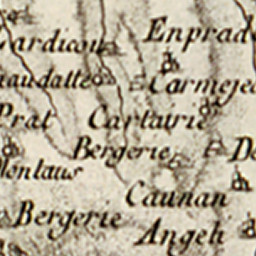 Cardicou
Enprad
audatte
Carmeje
Prat
Cartairie
Bergerie
Montaus
Caunan
Bergerie
Angeli